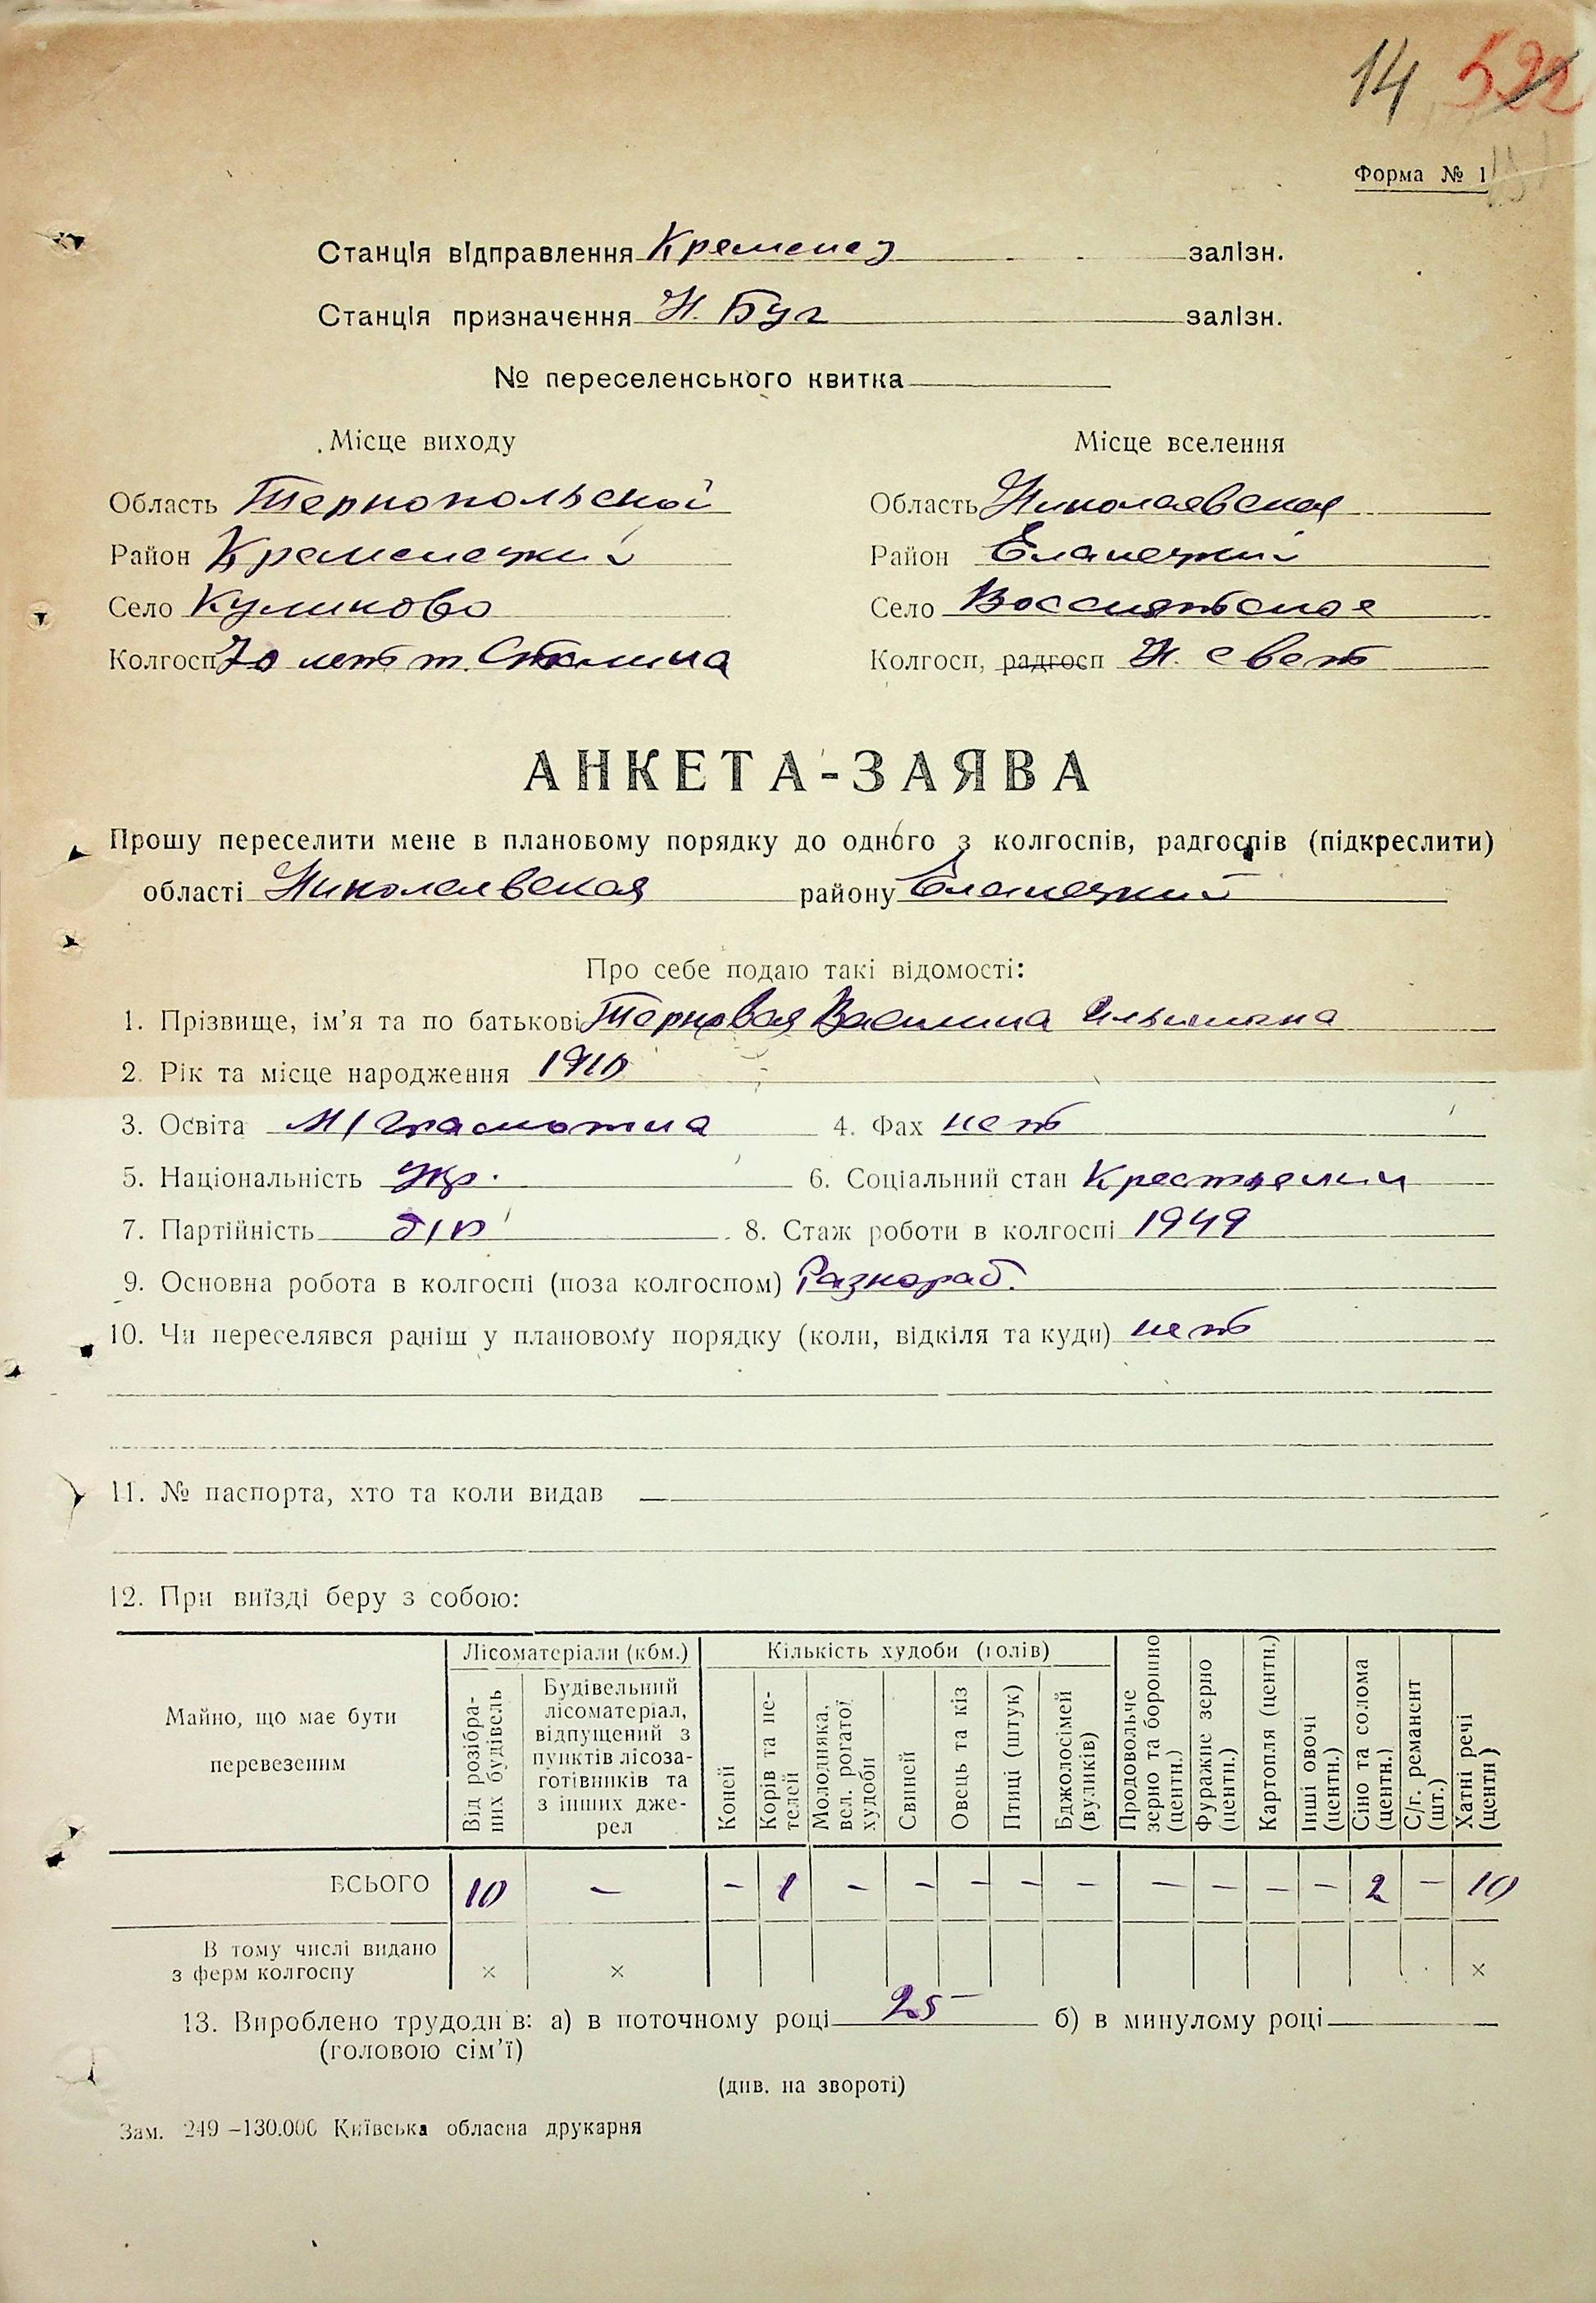 14 522
Форма № 1
Станція відправлення Кременец залізн.
Станція призначення Н. Буг залізн.
№ переселенського квитка
Місце виходу Місце вселення
Область Тернопольской Область Николаевская
Район Кременецкий Район Еланецкий
Село Куликово Село Воссиятское
Колгосп 70 лет т. Сталина Колгосп, радгосп Н. свет
АНКЕТА-ЗАЯВА
Прошу переселити мене в плановому порядку до одного з колгоспів, радгоспів (підкреслити)
області Николаевская району Еланецкий
Про себе подаю такі відомості:
1. Прізвище, ім'я та по батькові Терновая Василина Ильинична
2. Рік та місце народження 1910
3. Освіта М/грамотна 4. Фах нет
5. Національність Укр. 6. Соціальний стан Крестьянин
7. Партійність б/п 8. Стаж роботи в колгоспі 1949
9. Основна робота в колгоспі (поза колгоспом) Разнораб.
10. Чи переселявся раніш у плановому порядку (коли, відкіля та куди) нет
11. № паспорта, хто та коли видав —
12. При виїзді беру з собою:
Майно, що має бути перевезеним
Лісоматеріали (кбм.)
Від розібраних будівель
Будівельний лісоматеріал, відпущений з пунктів лісозаготівників та з інших джерел
Кількість худоби (голів)
Коней
Корів та нетелей
Молодняка, вел. рогатої худоби
Свиней
Овець та кіз
Птиці (штук)
Бджолосімей (вуликів)
Продовольче зерно та борошно (центн.)
Фуражне зерно (центн.)
Картопля (центн.)
Інші овочі (центн.)
Сіно та солома (центн.)
С/г. реманент (шт.)
Хатні речі (центн)
ВСЬОГО 10 — — 1 — — — — — — — — — 2 — 10
В тому числі видано
з ферм колгоспу × × ×
13. Вироблено трудоднів: а) в поточному році 25 б) в минулому році
(головою сім'ї)
(див. на звороті)
Зам. 249 —130.000 Київська обласна друкарня